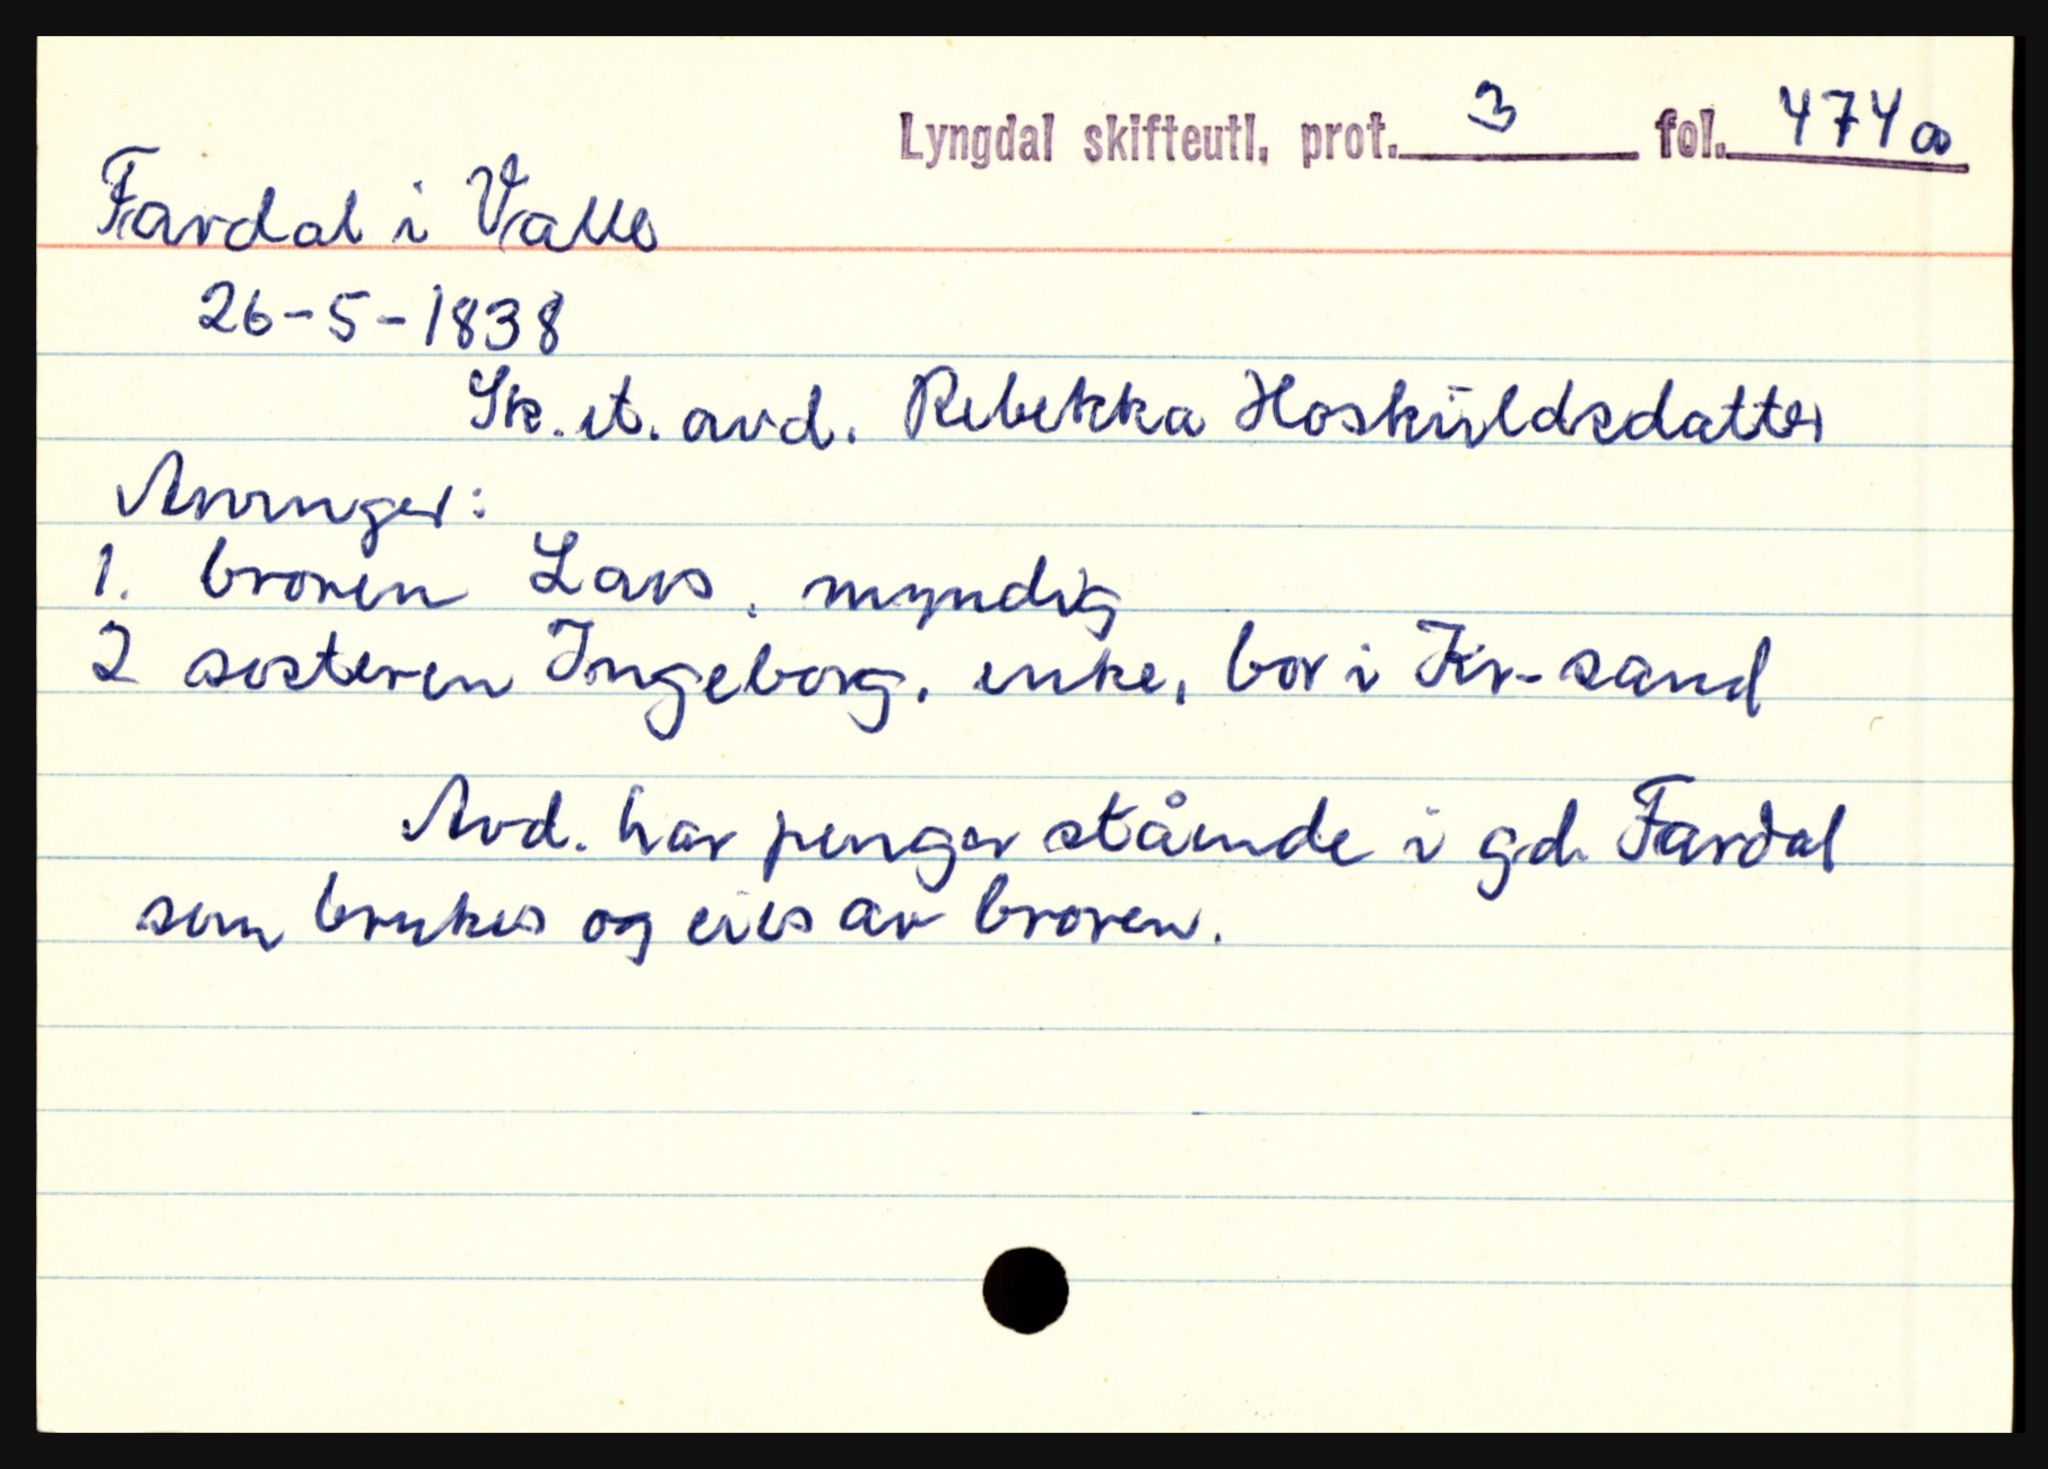 Lyngdal skifteutl. prot. 3 fol. 474a
Fardal i Valle
26-5-1838
Sk. et. avd. Rebekka Hoskuldsdatter
Arvinger:
1. broren Lars, myndig
2 søsteren Ingeborg, enke, bor i Kr-sand
Avd. har penger stående i gd. Fardal
som brukes og eies av broren.